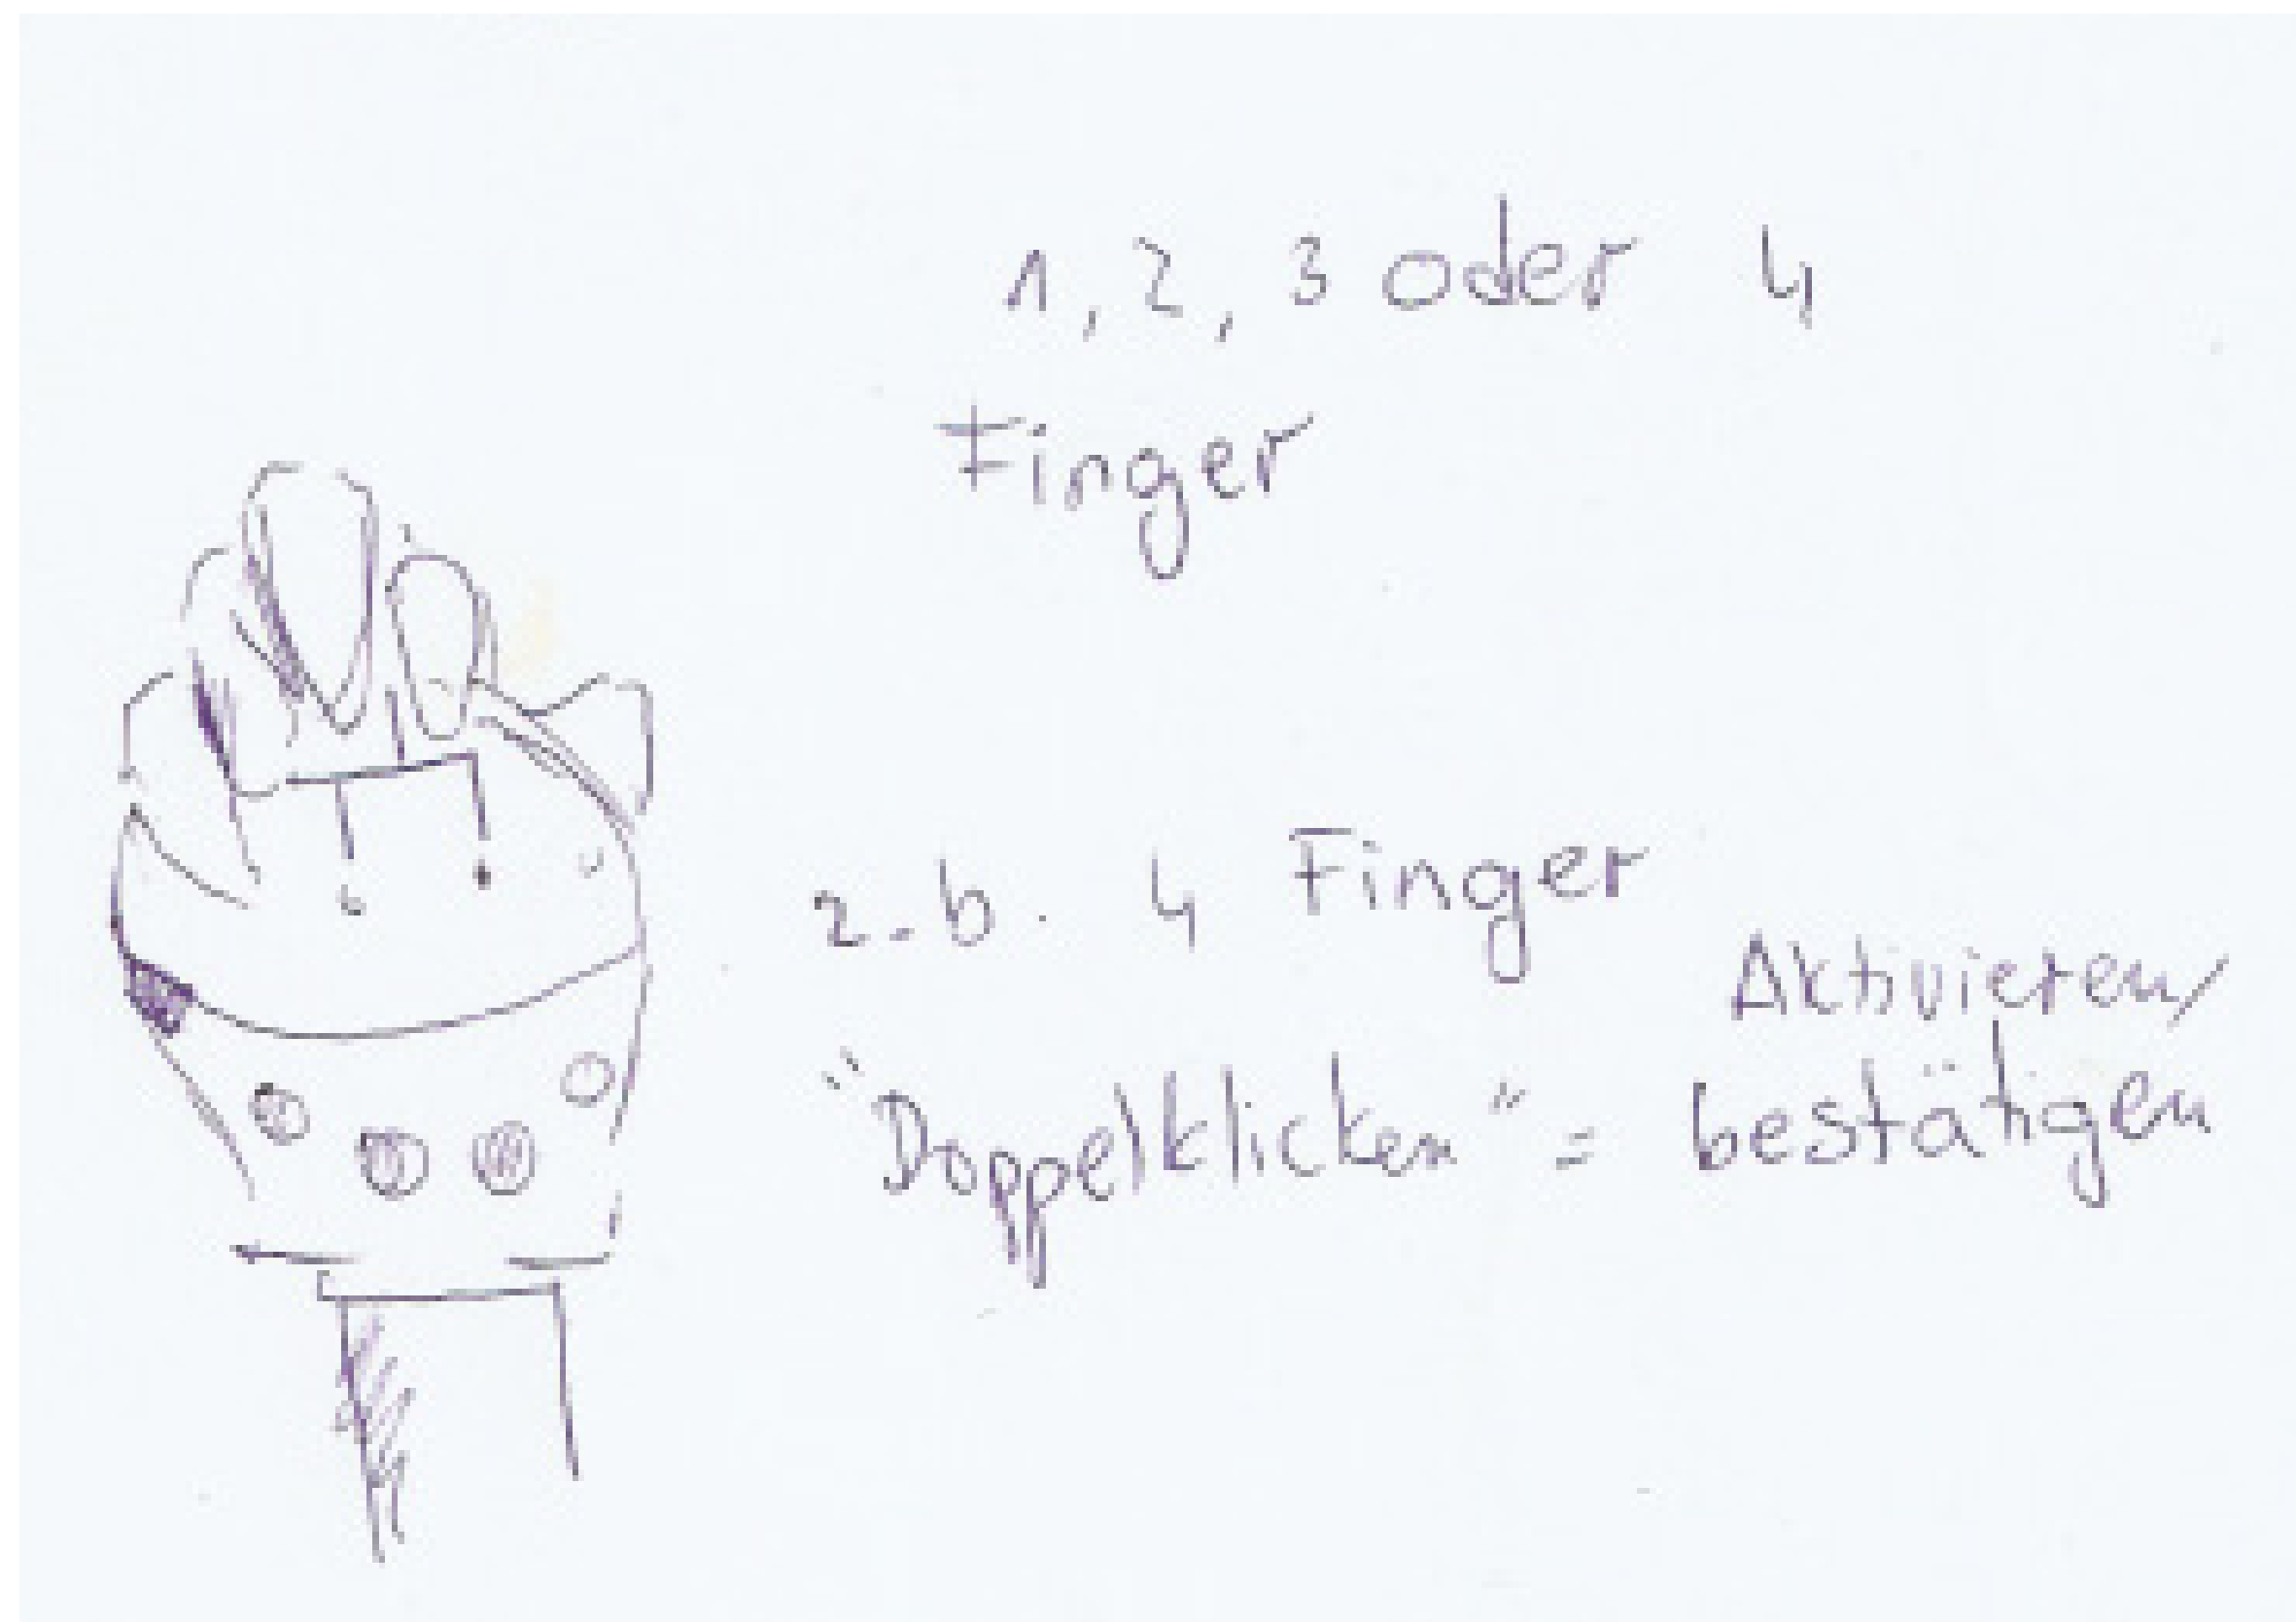 1, 2, 3 oder 4
Finger
z.b. 4 Finger
"Doppelklicken" = Aktivieren/
bestätigen